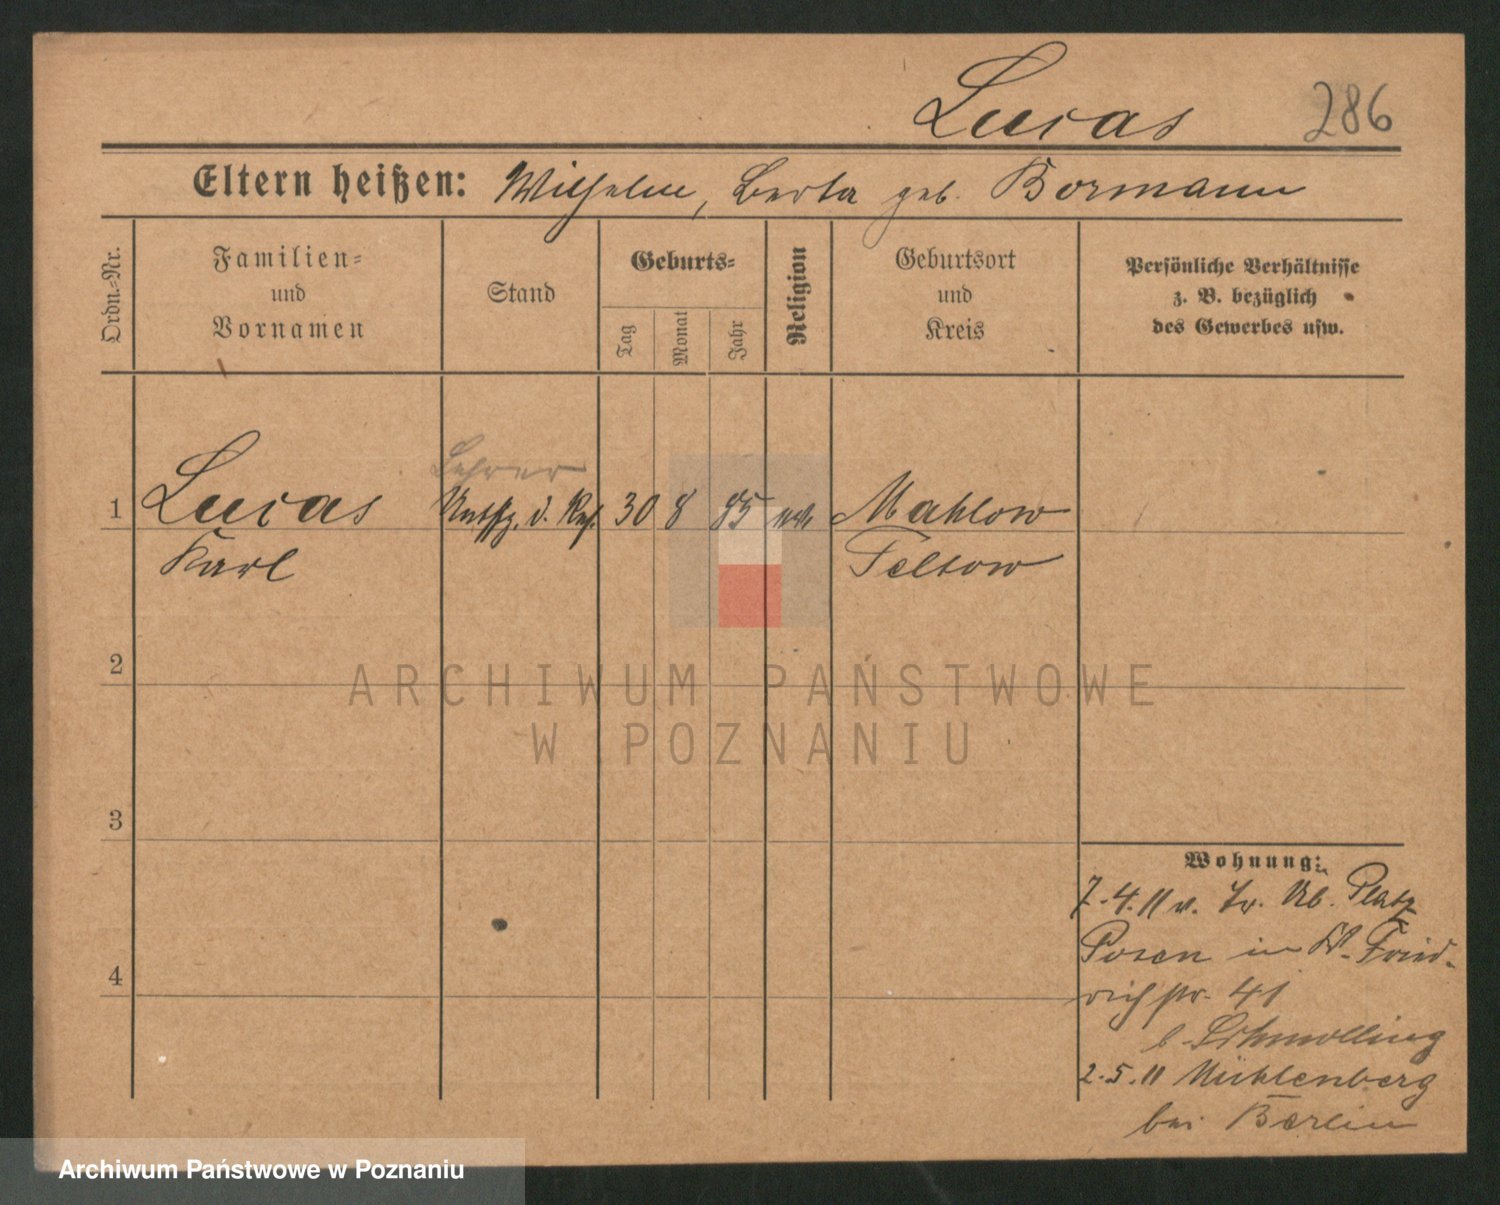 Lucas 286
Eltern heißen: Wilhelm, Berta geb. Bormann
Ordn.-Nr.
Familien-
und
Vornamen
Stand
Geburts-
Tag
Monat
Jahr
Religion
Geburtsort
und
Kreis
Persönliche Verhältnisse
z. B. bezüglich
des Gewerbes usw.
Lehrer
1 Lucas d. 30 8 85 Mahlow
Karl Teltow
2
3
4
Wohnung:
7.4.11 v. Tr. Üb. Platz
Posen in W. Fried-
richstr. 41
b. Schmolling
2.5.11 Mühlenberg
bei Berlin
ARCHIWUM PAŃSTWOWE
W POZNANIU
Archiwum Państwowe w Poznaniu